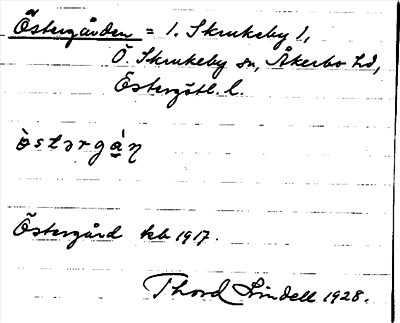 Östergården = 1. Skrukeby 1,
Ö. Skrukeby sn, Åkerbo hd,
Östergötl. l.
òstərgá̠ɳ
Östergård kb 1917.
Thord Lindell 1928.